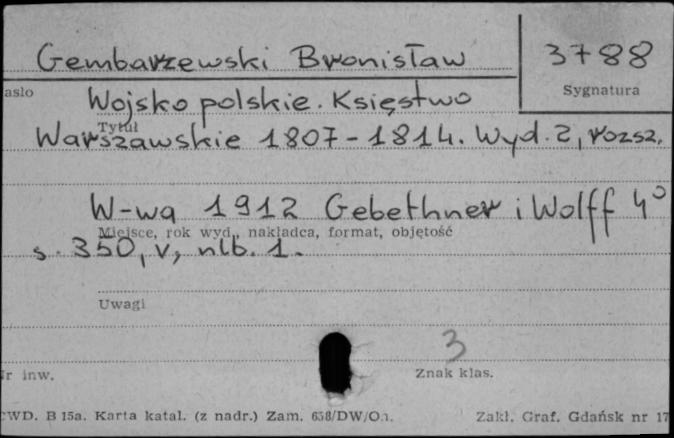 Gembarzewski Bronisław
3788
Sygnatura
asło
Wojsko polskie. Księstwo
Tytuł
Warszawskie 1807-1814. Wyd. 2, rozsz.
W-wa 1912 Gebethner i Wolff 4°
Miejsce, rok wyd., nakładca, format, objętość
s. 350, V, nlb. 1.
Uwagi
3
r inw.
Znak klas.
WD. B 15a. Karta katal. (z nadr.) Zam. 658/DW/On.
Zakł. Graf. Gdańsk nr 17